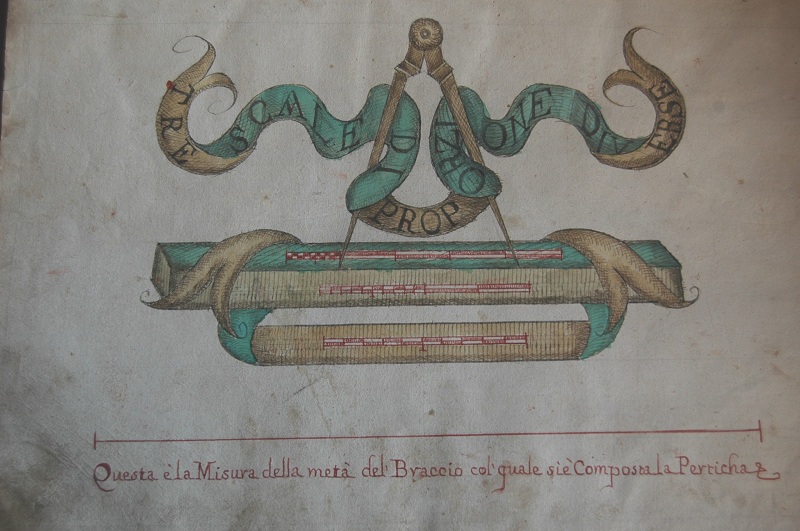 TRE SCALE DI PROPORZIONE DIVERSE
Questa è la Misura della metà del' Braccio col' quale si è Composta la Perticha